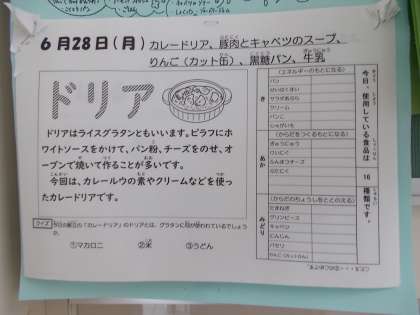 6月28日(月) カレードリア、豚肉とキャベツのスープ、
りんご(カット缶)、黒糖パン、牛乳
ドリア
ドリアはライスグラタンともいいます。ピラフにホ
ワイトソースをかけて、パン粉、チーズをのせ、オ
ーブンで焼いて作ることが多いです。
今回は、カレールウの素やクリームなどを使っ
たカレードリアです。
クイズ 今日の献立の「カレードリア」のドリアとは、グラタンに何が使われているでしょう
か。
①マカロニ ②米 ③うどん
今日、使用している食品は
18
種類です。
き
(エネルギーのもとになる)
パン
サラダあぶら
クリーム
パンこ
じゃがいも
あか
(からだをつくるもとになる)
ぎゅうにゅう
ぶたにく
みどり
(からだのちょうしをととのえる)
たまねぎ
グリンピース
キャベツ
にんじん
パセリ
りんご(カットかん)